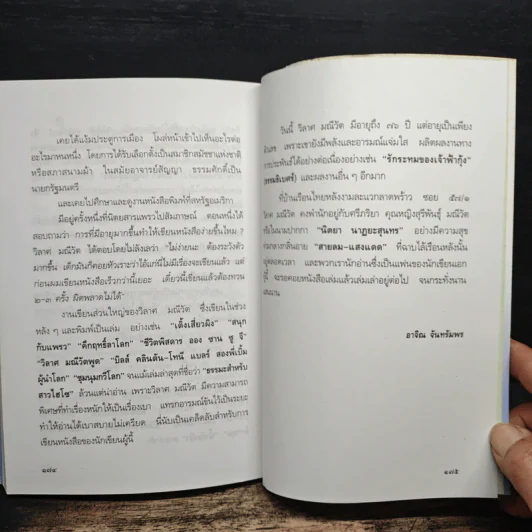 เคยได้แง้มประตูการเมือง โผล่หน้าเข้าไปเห็นอะไรต่อ
อะไรมาหนหนึ่ง โดยการได้รับเลือกตั้งเป็นสมาชิกสมัชชาแห่งชาติ
หรือสภาสนามม้า ในสมัยอาจารย์สัญญา ธรรมศักดิ์เป็น
นายกรัฐมนตรี
และเคยไปศึกษาและดูงานหนังสือพิมพ์ที่สหรัฐอเมริกา
มีอยู่ครั้งหนึ่งที่นิตยสารแพรวไปสัมภาษณ์ ตอนหนึ่งได้
สอบถามว่า การที่มีอายุมากขึ้นทำให้เขียนหนังสือง่ายขึ้นไหม ?
วิลาศ มณีวัต ได้ตอบโดยไม่ลังเลว่า “ไม่ง่ายนะ ต้องระวังตัว
มากขึ้น เด็กมันก็คอยหัวเราะว่าไอ้แก่นี่ไม่มีเรื่องจะเขียนแล้ว แต่
ก่อนผมเขียนหนังสือเร็วกว่านี้เยอะ เดี๋ยวนี้เขียนแล้วต้องทวน
๒-๓ ครั้ง ผิดพลาดไม่ได้”
งานเขียนส่วนใหญ่ของวิลาศ มณีวัต ซึ่งเขียนในช่วง
หลัง ๆ และพิมพ์เป็นเล่ม อย่างเช่น “เต็งเสี่ยวผิง” “สนุก
กับแพรว” “คึกฤทธิ์ลาโลก” “ชีวิตพิสดาร ออง ซาน ซู จี”
“วิลาศ มณีวัตพูด” “บิลล์ คลินตัน-โทนี่ แบลร์ สองพี่เบิ้ม
ผู้นำโลก” “ชุมนุมกวีโลก” จนแม้เล่มล่าสุดที่ชื่อว่า “ธรรมะสำหรับ
สาวไฮโซ” ล้วนแต่น่าอ่าน เพราะวิลาศ มณีวัต มีความสามารถ
พิเศษที่ทำเรื่องหนักให้เป็นเรื่องเบา แทรกอารมณ์ขันไว้เป็นระยะ
ทำให้อ่านได้เบาสบายไม่เครียด นี่นับเป็นเคล็ดลับสำหรับการ
เขียนหนังสือของนักเขียนผู้นี้
๑๗๔
วันนี้ วิลาศ มณีวัต มีอายุถึง ๗๖ ปี แต่อายุเป็นเพียง
ตัวเลข เพราะเขายังมีพลังและอารมณ์แจ่มใส ผลิตผลงานทาง
การประพันธ์ได้อย่างต่อเนื่องอย่างเช่น “รักระทมของเจ้าฟ้ากุ้ง”
(ธรรมธิเบศร์) และผลงานอื่น ๆ อีกมาก
ที่บ้านเรือนไทยหลังงามละแวกลาดพร้าว ซอย ๕๗/๑
วิลาศ มณีวัต คงพำนักอยู่กับศรีภริยา คุณหญิงสุรีพันธุ์ มณีวัต
หรือในนามปากกา “นิตยา นาฏยะสุนทร” อย่างมีความสุข
ท่ามกลางกลิ่นอาย “สายลม-แสงแดด” ที่ฉาบไล้เรือนหลังนั้น
อยู่ตลอดเวลา และพวกเรานักอ่านซึ่งเป็นแฟนของนักเขียนเอก
ผู้นี้ จะรอคอยหนังสือเล่มแล้วเล่มเล่าอยู่ต่อไป จนกระทั่งนาน
แสนนาน
อาจิณ จันทรัมพร
๑๗๕